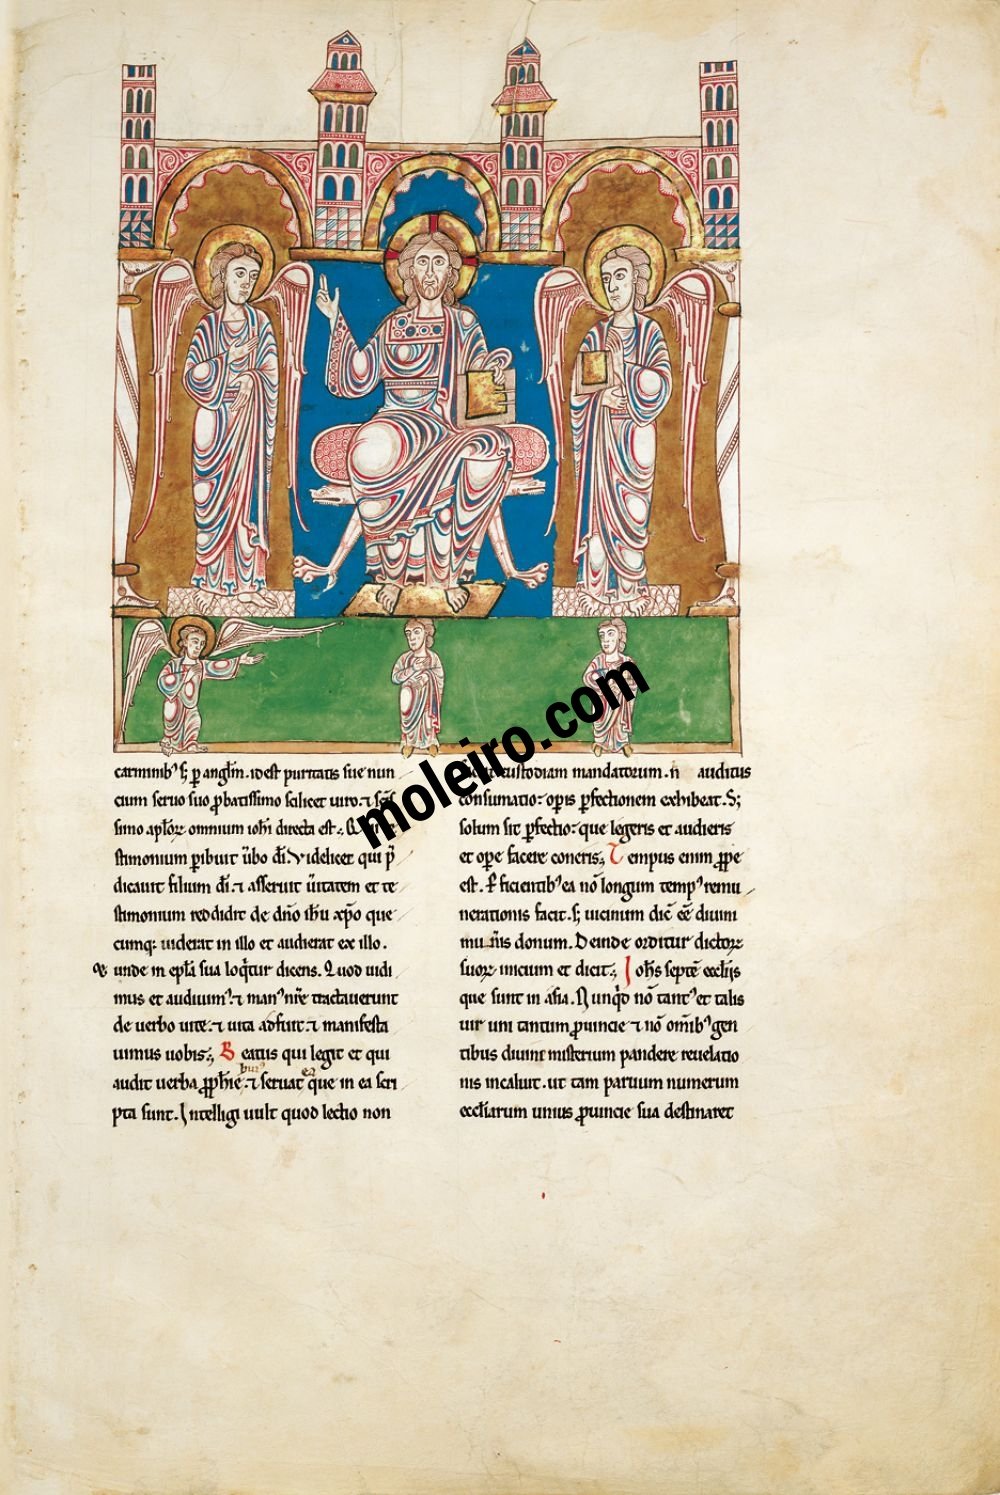 carminibꝰ ſꝫ ꝑ angl̄m. idest puritatis sue nun
cium seruo suo ꝓbatissimo scilicet uiro. ⁊ sc̄s
simo apl̄oꝝ omnium ioh̄i directa est.
stimonium ꝑibuit ūbo dī. Videlicet qui p̄
dicauit filium dī. ⁊ asseruit ūitatem et te
stimonium reddidit de dn̄o ih̄u xp̄o que
cumqꝫ uiderat in illo et audierat ex illo.
unde in epl̄a sua loq̄tur dicens. Quod uidi
mus et audiuimꝰ. ⁊ manꝰ nr̄e tractauerunt
de uerbo uite. ⁊ uita adfuit. ⁊ manifesta
uimus uobis. Beatus qui legit et qui
audit uerba ꝓph̄ie. ⁊ seruat ea que in ea scri
pta sunt. Intelligi uult quod lectio non
custodiam mandatorum. n̄ auditus
consumatio: opis ꝑfectionem exhibeat. Sꝫ
solum sit ꝑfectio: que legeris et audieris
et ope facere coneris. Tempus enim ꝓpe
est. ꝑficientibꝰ ea nō longum tempꝰ remu
nerationis facit. sꝫ uicinum dic̄ eē diuini
muneris donum. Deinde orditur dictoꝝ
suoꝝ inicium et dicit. Ioh̄s septē eccl̄iis
que sunt in asia. Nunqd nō tantꝰ et talis
uir uni tantum ꝓuincie ⁊ nō om̄ibꝰ gen
tibus diuini misterium pandere reuelatio
nis incaluit. ut tam paruum numerum
eccl̄iarum unius ꝓuincie sua destinaret
moleiro.com